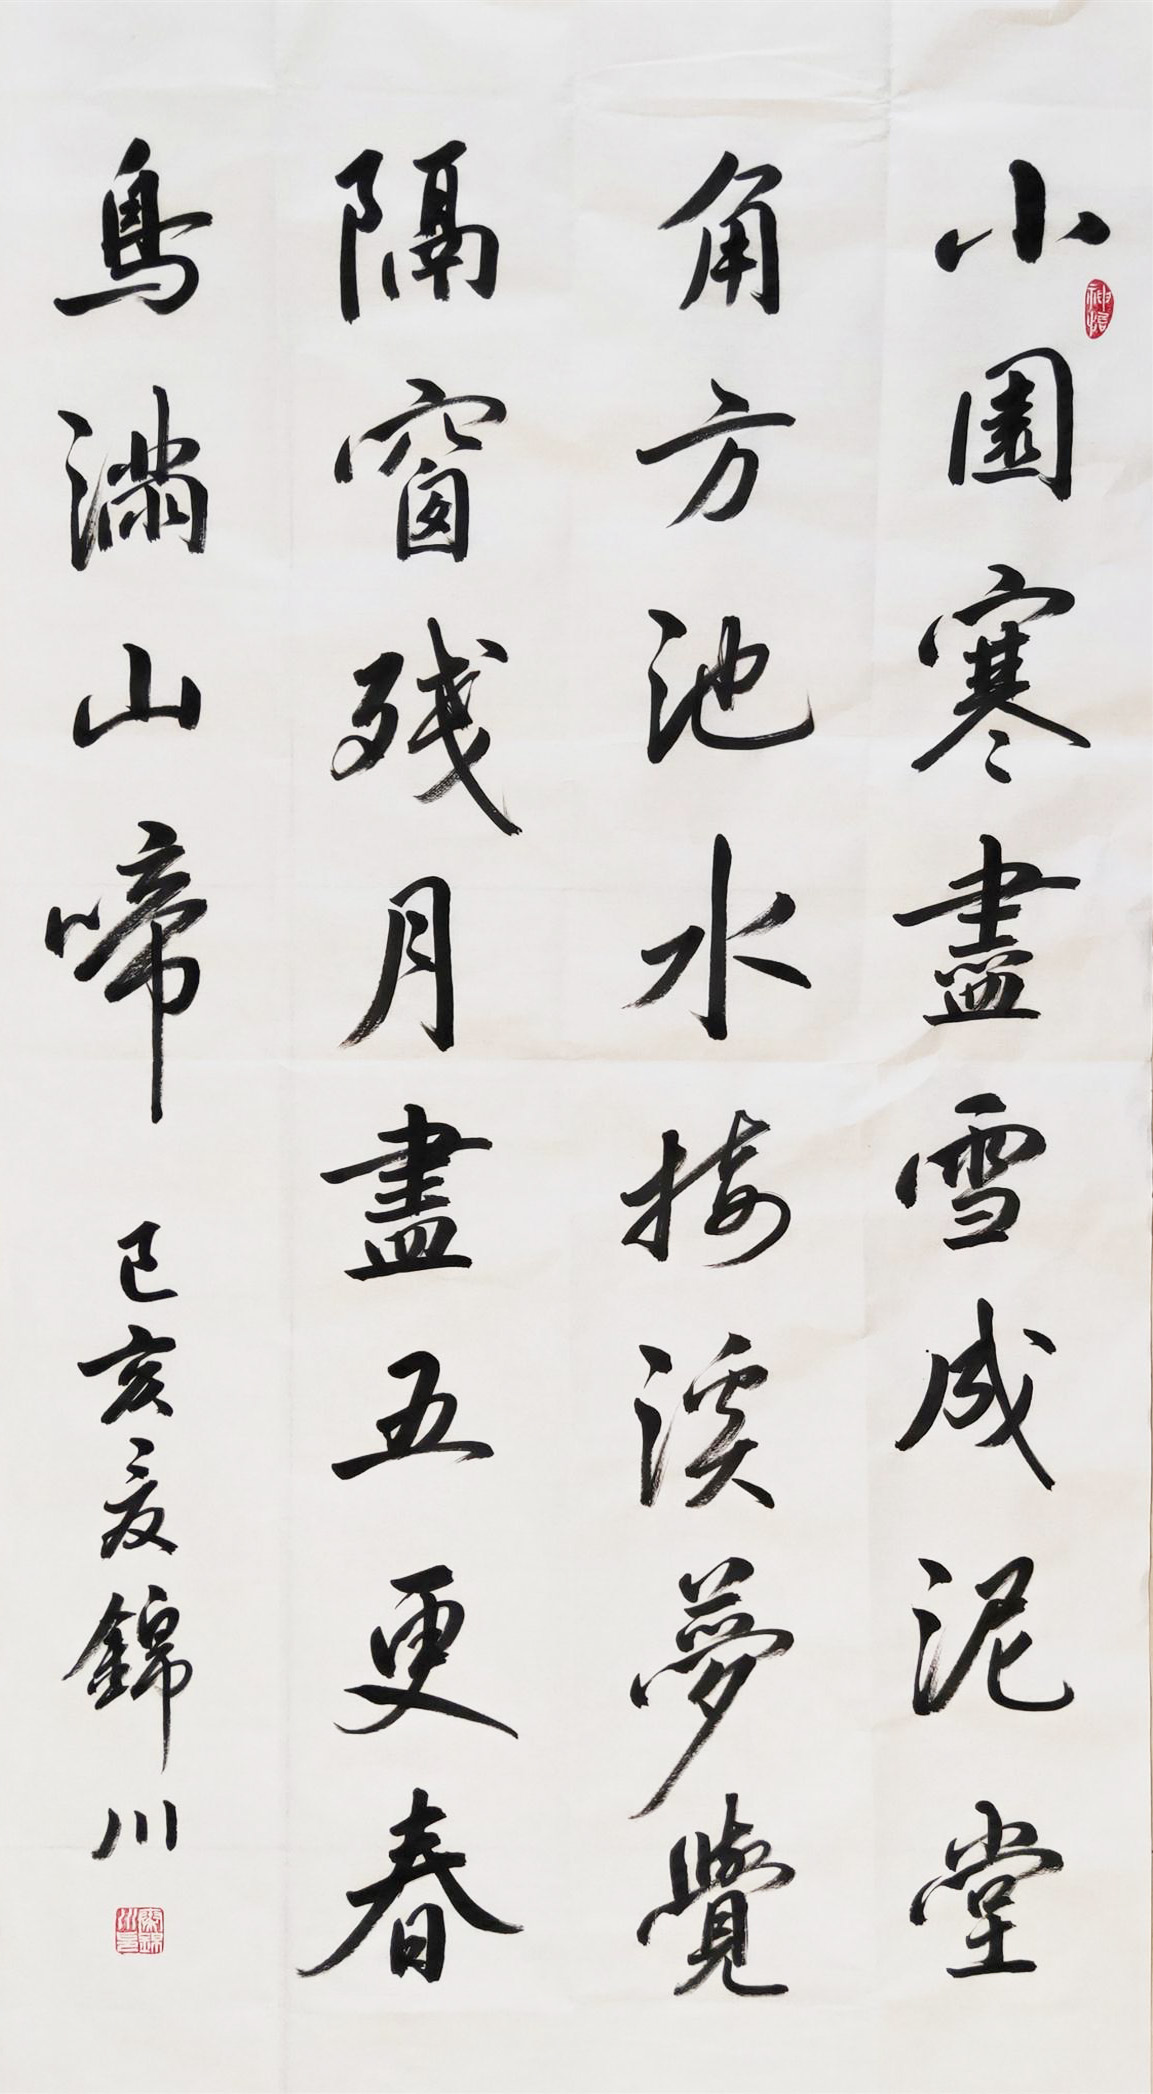 小園寒盡雪成泥堂
角方池水接溪夢覺
隔窗残月盡五更春
鳥滿山啼 己亥夏錦川
神怡